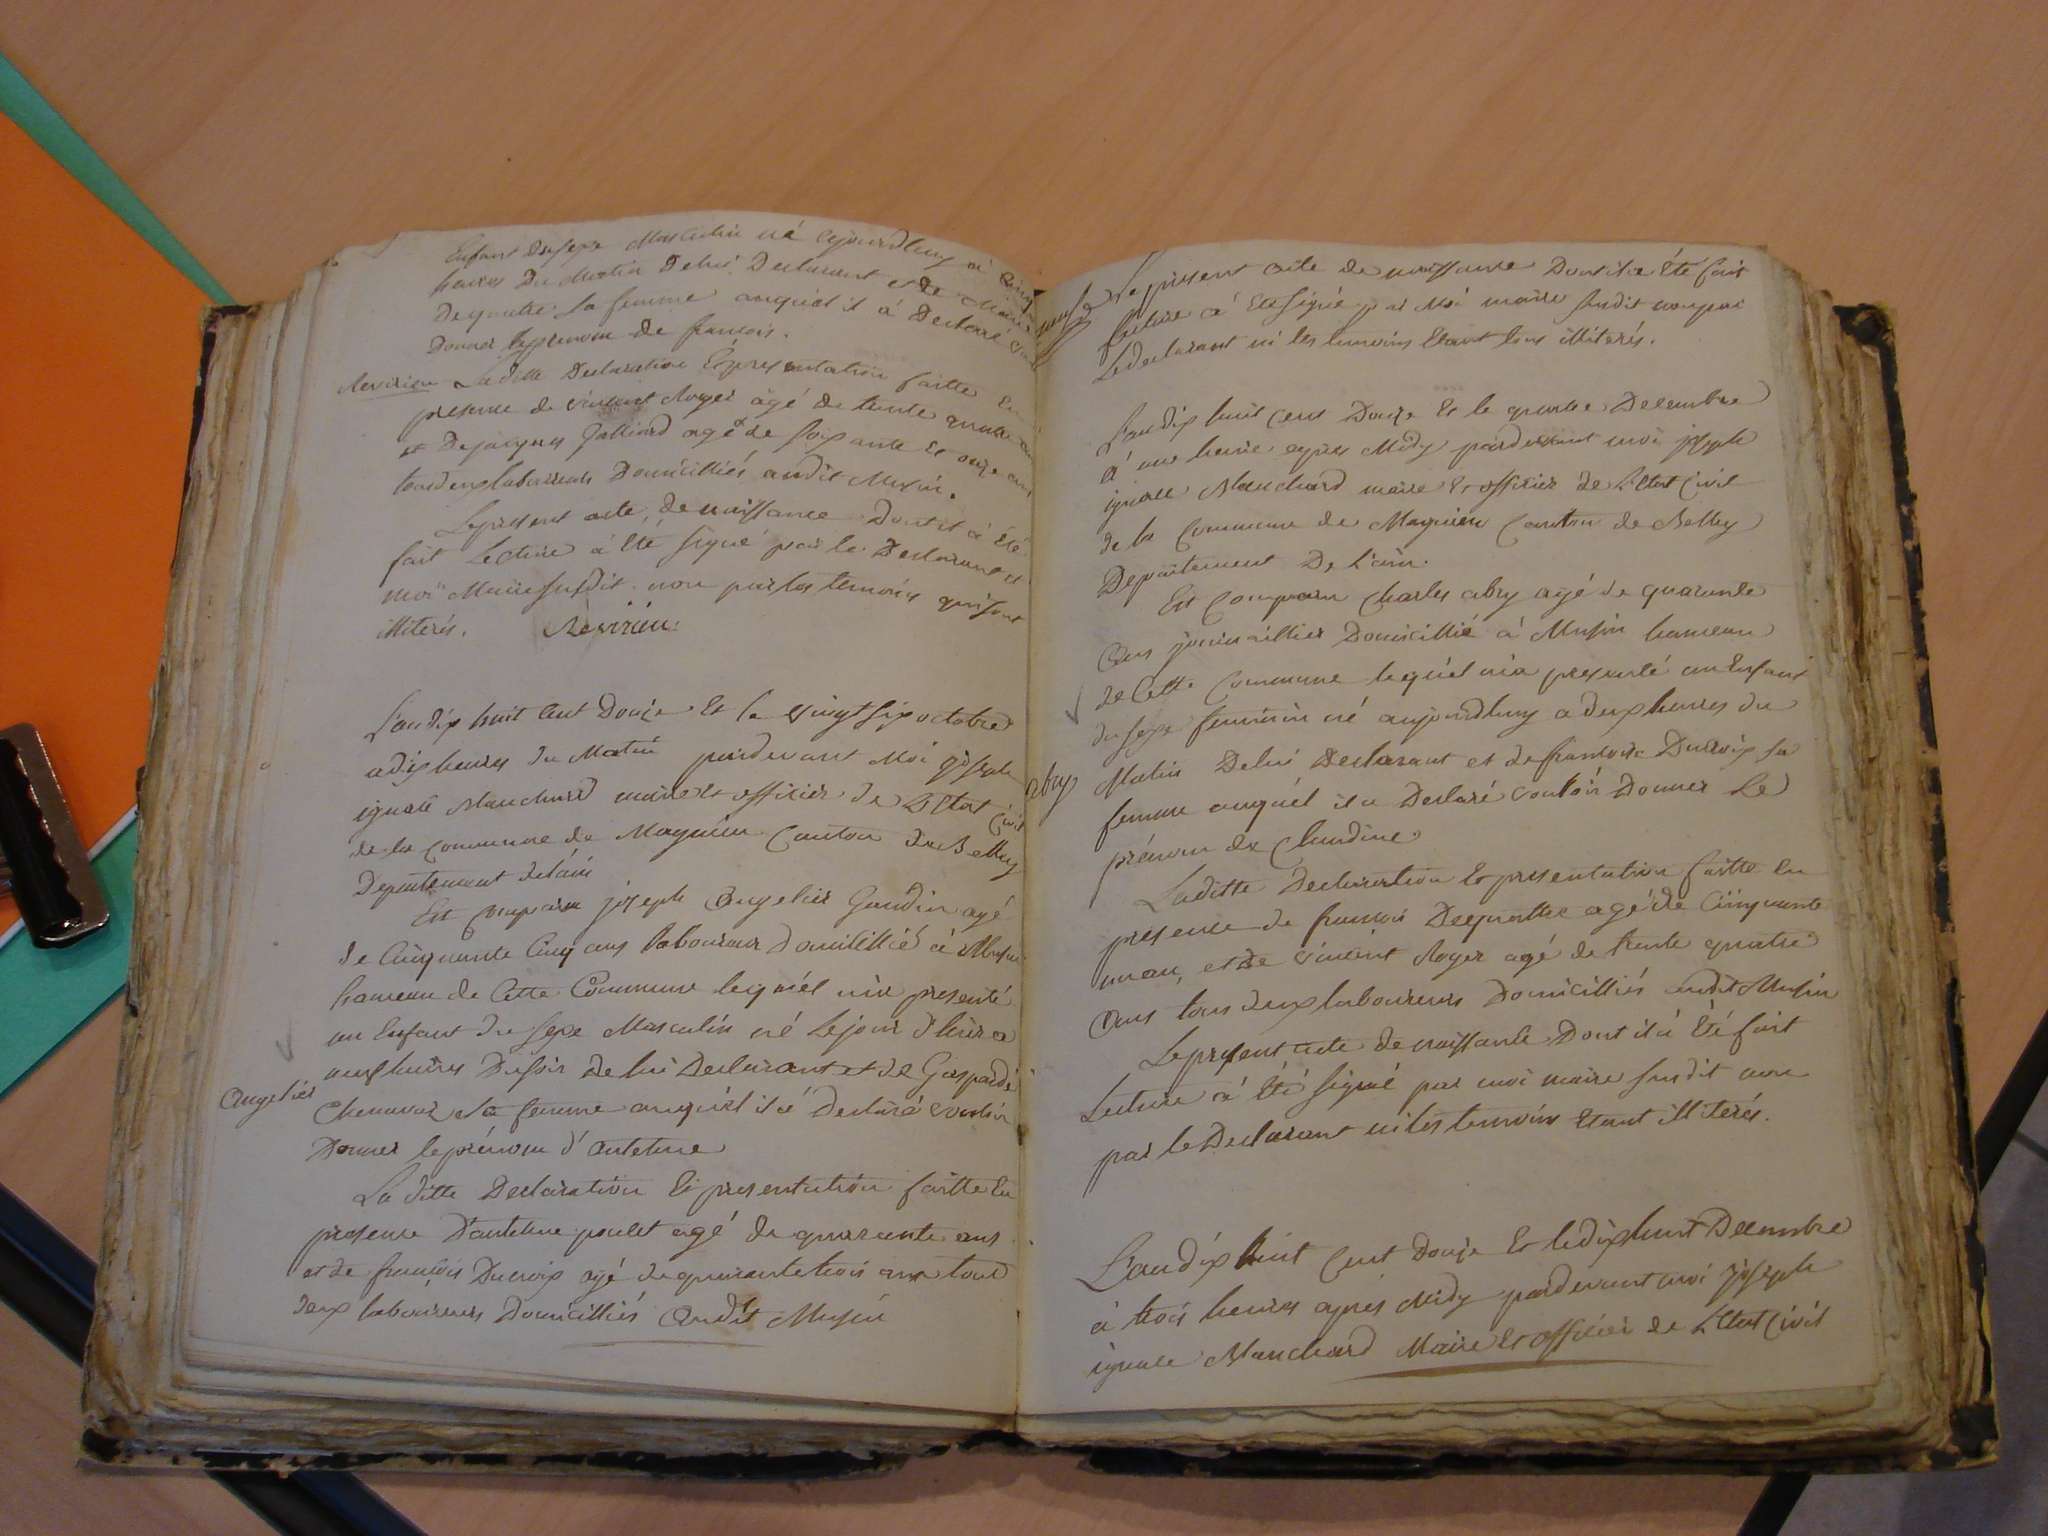 Enfant Du sexe Masculin né ajourdhuy à Cinq
heures Du Matin Delui Declarant et de Marie
Dequatre sa femme auquel il à Declaré
Donner le prenom de francois.
Revirieu La ditte Declaration Et presentation faitte En
presence de vincent Royer âgé de trente quatre ans
et De jacques Galliard agé de soixante et onze ans
tous deux laboureurs Domicilliés audit Musin.
Le present acte de naissance Dont il à Eté
fait Lecture à Eté signé par le Declarant et
moi Maire susdit non par les temoins qui sont
illiterés. Revirieu
L'an dix huit Cent Douze Et le vingt six octobre
a dix heures du Matin pardevant Moi joseph
ignace Blanchard maire et officier de L'Etat Civil
de la Commune de Magnieu Canton de Belley
Departement de l'ain
Est Comparu joseph Angelier Gaudin agé
de Cinquante Cinq ans laboureur Domicillié à Musin
hameau de Cette Commune lequel m'a presenté
un Enfant du sexe Masculin né le jour d'hier a
neuf heures Du soir de lui Declarant et de Gasparde
Angelier
Chenavaz sa femme auquel il à Declaré vouloir
Donner le prénom d'antelme
La ditte Declaration Et presentation faitte En
presence D'antelme poulet agé de quarante ans
et de francois Ducroix agé de quarante trois ans tous
deux laboureurs Domicilliés Audit Musin
Le present acte de naissance Dont il a Eté fait
Lecture a Eté signé par Moi maire susdit non par
Le declarant ni les temoins Etant tous illiterés.
L'an dix huit Cent Douze Et le quatre Decembre
à une heure apres Midy pardevant moi joseph
ignace Blanchard maire Et officier de L'Etat Civil
de la Commune de Magnieu Canton de Belley
Departement De L'ain.
Est Comparu Charles abry agé de quarante
Ans journaillier Domicillié à Musin hameau
de Cette Commune lequel m'a presenté un Enfant
du sexe feminin né aujourdhuy a deux heures du
abry
Matin Delui Declarant et de francoise Ducroix sa
femme auquel il a Declaré vouloir Donner Le
prénom de Claudine
La ditte Declaration Et presentation faitte En
presence de francois Dequatre agé de Cinquante
un an, et de vincent Royer agé de trente quatre
Ans tous deux laboureurs Domicilliés audit Musin
Le present acte de naissance Dont il à Eté fait
Lecture à Eté signé par moi maire susdit non
par le Declarant ni les temoins Etant illiterés.
L'an dix huit Cent Douze Et le dix huit Decembre
à trois heures apres Midy pardevant moi joseph
ignace Blanchard Maire Et officier de L'Etat Civil